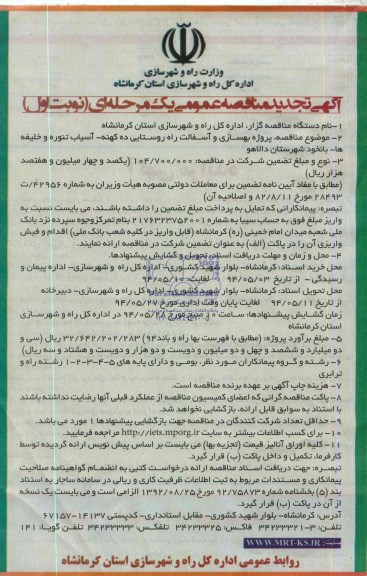 وزارت راه و شهرسازی
اداره کل راه و شهرسازی استان کرمانشاه
آگهی تجدید مناقصه عمومی یک مرحله ای (نوبت اول)
۱-نام دستگاه مناقصه گزار، اداره کل راه و شهرسازی استان کرمانشاه
۲- موضوع مناقصه، پروژه بهسازی و آسفالت راه روستایی ده کهنه- آسیاب تنوره و خلیفه
ها- بانخود شهرستان دالاهو
۳- نوع و مبلغ تضمین شرکت در مناقصه: ۱۰۴/۷۰۰/۰۰۰ (یکصد و چهار میلیون و هفتصد
هزار ریال)
(مطابق با مفاد آیین نامه تضمین برای معاملات دولتی مصوبه هیأت وزیران به شماره ۴۲۹۵۶/ت
۲۸۴۹۳ مورخ ۸۲/۸/۱۱ و اصلاحیه آن)
تبصره: پیمانکارانی که تمایل به پرداخت مبلغ تضمین را داشته باشند، می بایست نسبت به
واریز مبلغ فوق به حساب سیبا به شماره ۲۱۷۶۴۳۲۷۵۲۰۰۱ بنام تمرکزوجوه سپرده نزد بانک
ملی شعبه میدان امام خمینی (ره) کرمانشاه (قابل واریز در کلیه شعب بانک ملی) اقدام و فیش
واریزی آن را در پاکت (الف) به عنوان تضمین شرکت در مناقصه ارائه نمایند.
۴- محل و زمان و مهلت دریافت اسناد، تحویل و گشایش پیشنهادها.
محل خرید اسناد: کرمانشاه- بلوار شهید کشوری- اداره کل راه و شهرسازی- اداره پیمان و
رسیدگی - از تاریخ ۹۴/۰۵/۰۳ لغایت ۹۴/۰۵/۱۰
محل تحویل اسناد: کرمانشاه- بلوار شهید کشوری- اداره کل راه و شهرسازی- دبیرخانه
از تاریخ ۹۴/۰۵/۱۱ لغایت پایان وقت اداری مورخ ۹۴/۰۵/۲۷
زمان گشایش پیشنهادها: ساعت ۱۰ صبح مورخ ۹۴/۰۵/۲۸ در اداره کل راه و شهرسازی
استان کرمانشاه
۵- مبلغ برآورد پروژه: (مطابق با فهرست بها راه و باند۹۴) ۳۲/۶۴۲/۲۰۲/۲۸۳ ریال (سی و
دو میلیارد و ششصد و چهل و دو میلیون و دویست و دو هزار و دویست و هشتاد و سه ریال)
۶- رشته و گروه پیمانکاران مورد نظر، بومی و دارای پایه های ۵-۴-۳-۲-۱ رشته راه و
ترابری
۷- هزینه چاپ آگهی بر عهده برنده مناقصه است.
۸- پاکت مناقصه گرانی که اعضای کمیسیون مناقصه از عملکرد قبلی آنها رضایت نداشته باشند
با استناد به سوابق قابل ارائه، بازگشایی نخواهد شد.
۹- حداقل تعداد شرکت کنندگان در مناقصه جهت بازگشایی پیشنهادها ۱ مورد می باشد.
۱۰- برای کسب اطلاعات بیشتر به سایت http://iets.mporg.ir مراجعه فرمایید.
۱۱- کلیه اوراق آنالیز قیمت (تجزیه بها) می بایست بر اساس پیش نویس ارائه گردیده توسط
کارفرما، تکمیل و داخل پاکت (ب) قرار گیرد.
تبصره: جهت دریافت اسناد مناقصه ارائه درخواست کتبی به انضمام گواهینامه صلاحیت
پیمانکاری و مستندات مربوط به ثبت اطلاعات ظرفیت کاری و ریالی در سامانه ساجار به استناد
بند (۵) بخشنامه شماره ۹۲/۷۵۸۷۳ مورخ ۱۳۹۲/۰۸/۲۵ الزامی است و می بایست یک نسخه
از آن در پاکت (ب) قرار گیرد.
آدرس: کرمانشاه- بلوار شهید کشوری- مقابل استانداری- کدپستی ۱۴۱۳۷-۶۷۱۵۷
تلفن: ۳-۳۴۲۳۳۳۲۱ فاکس: ۳۴۲۳۳۳۲۵ تلفکس: ۳۴۲۳۳۳۳۳ تلفن گویا: ۱۴۱
WWW.MRT-KS.IR
روابط عمومی اداره کل راه و شهرسازی استان کرمانشاه